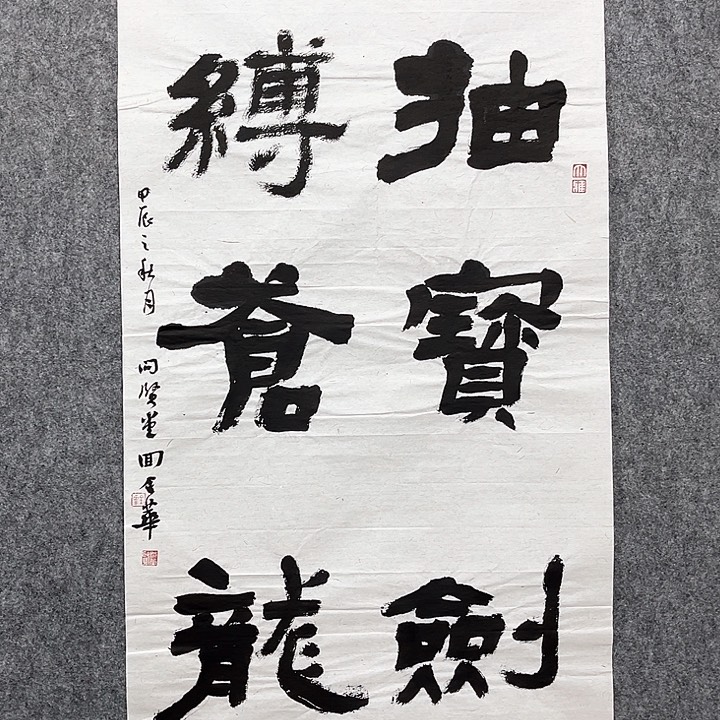 抽寶劍
縛蒼龍
甲辰之秋月
問賢堂回金華